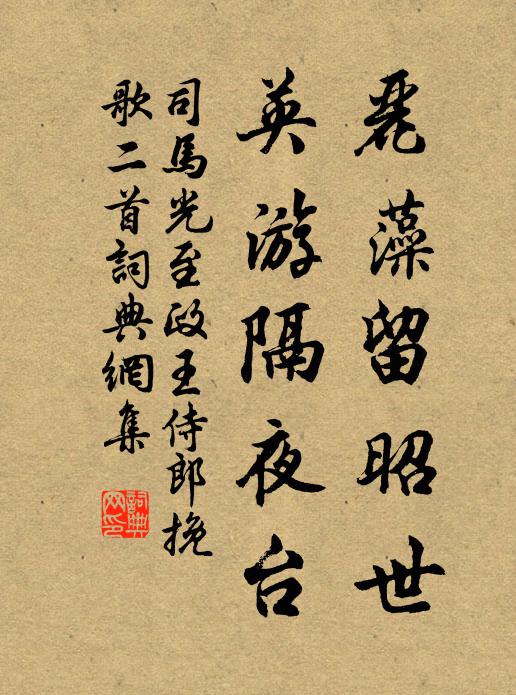 麗藻留昭世
英游隔夜台
司馬光至政王侍郎挽
歌二首詞典網集
詞典
网印